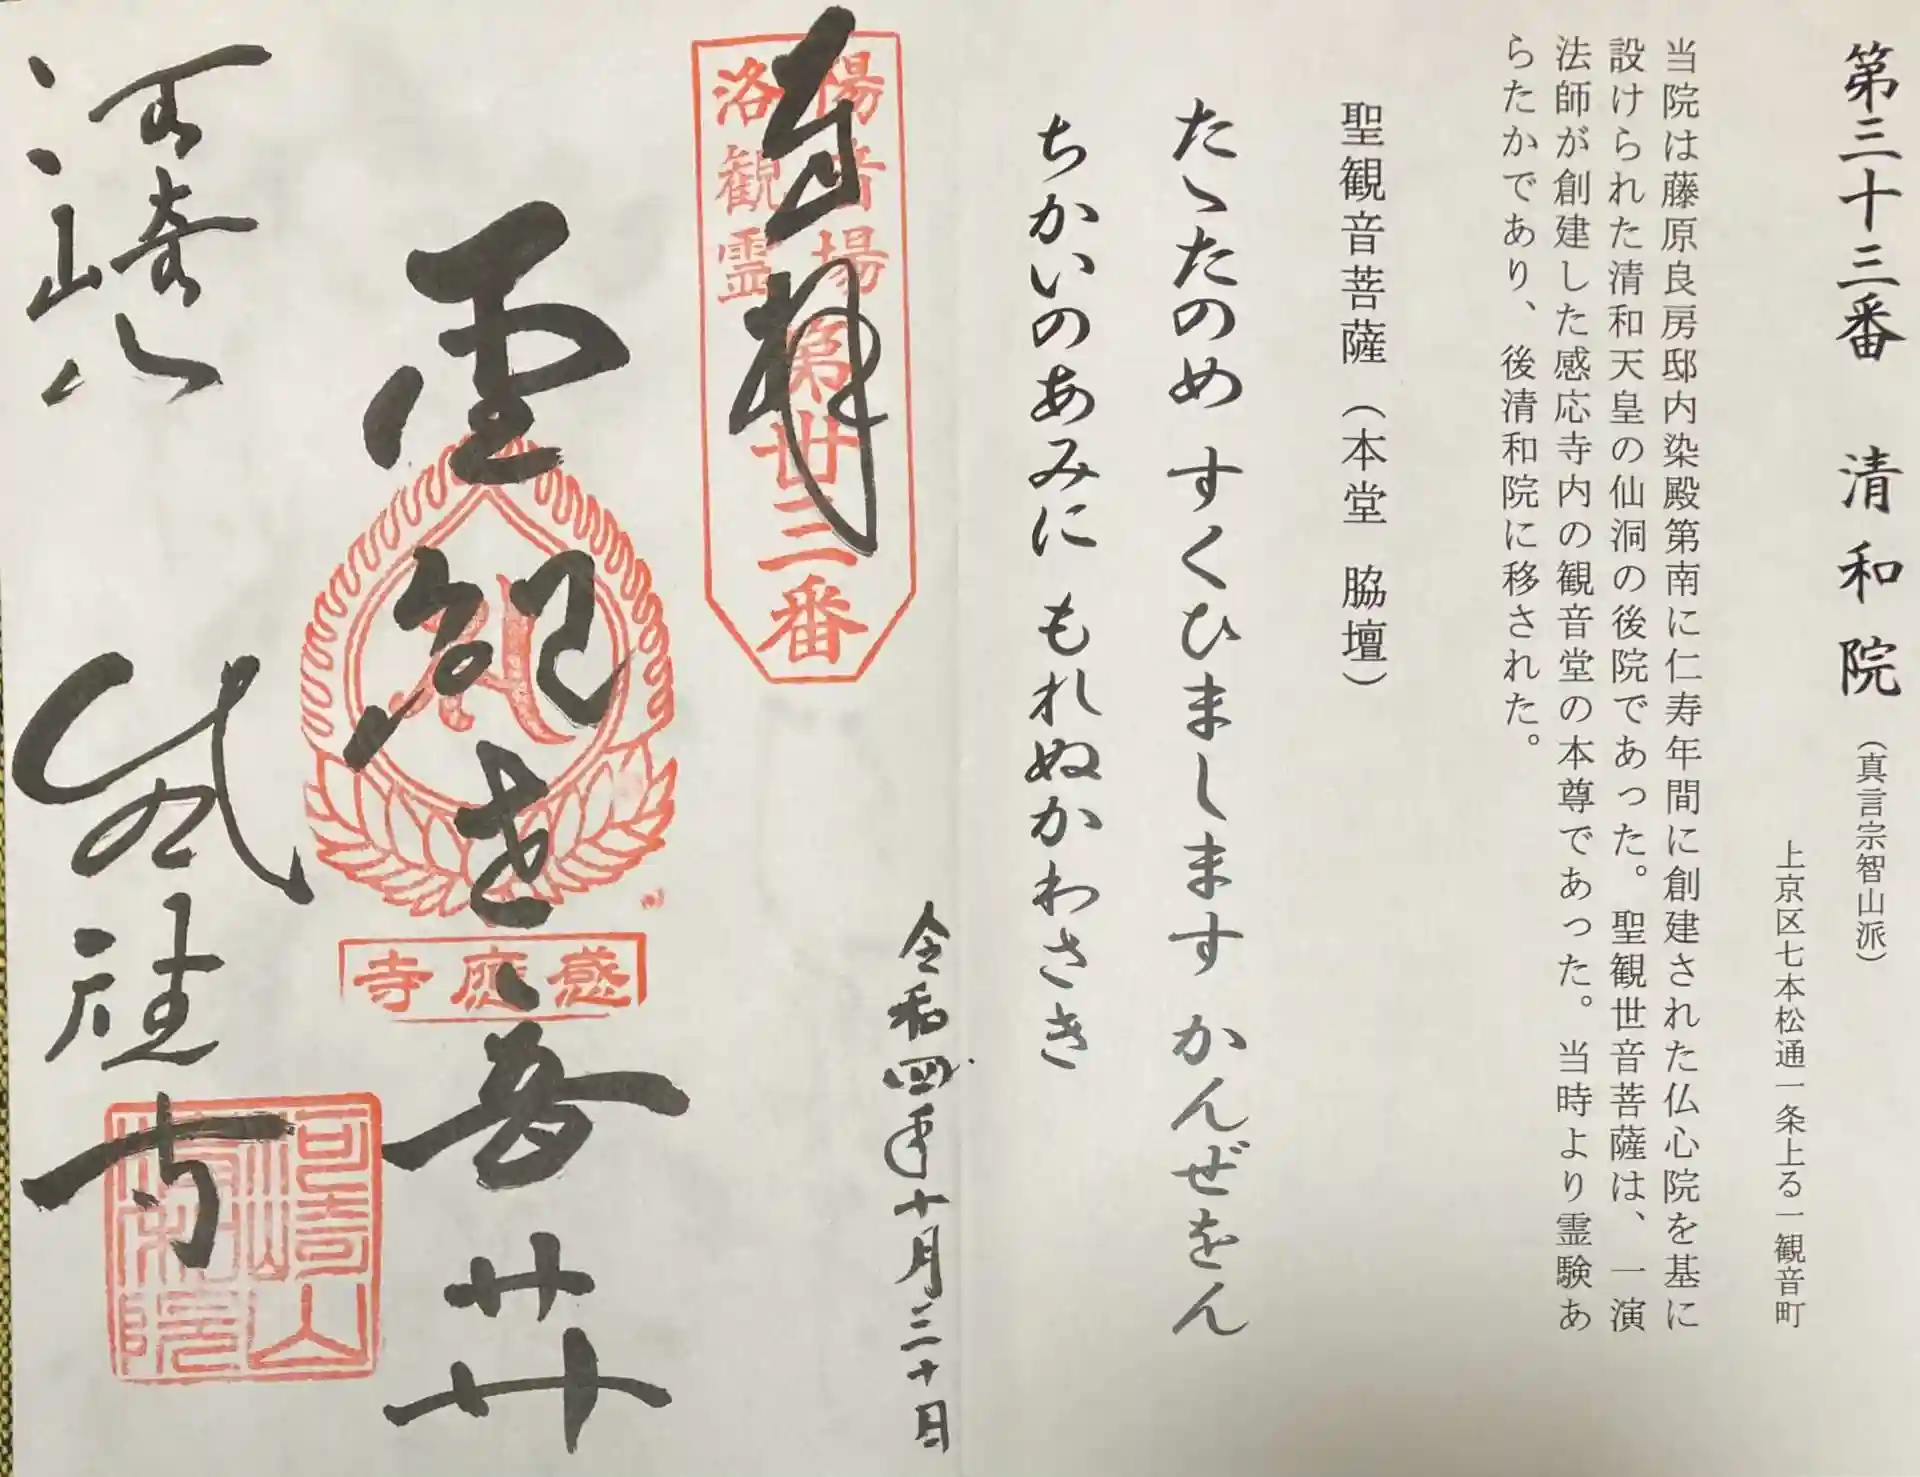 第三十三番 清和院（真言宗智山派）
上京区七本松通一条上る一観音町
当院は藤原良房邸内染殿第南に仁寿年間に創建された仏心院を基に
設けられた清和天皇の仙洞の後院であった。聖観世音菩薩は、一演
法師が創建した感応寺内の観音堂の本尊であった。当時より霊験あ
らたかであり、後清和院に移された。
聖観音菩薩（本堂 脇壇）
たゝたのめ すくひまします かんぜをん
ちかいのあみに もれぬかわさき
令和四年十月三十日
奉拝
洛陽観音霊場
第卅三番
聖観世音廾
感應寺
河崎
感應寺
河崎山
清和院